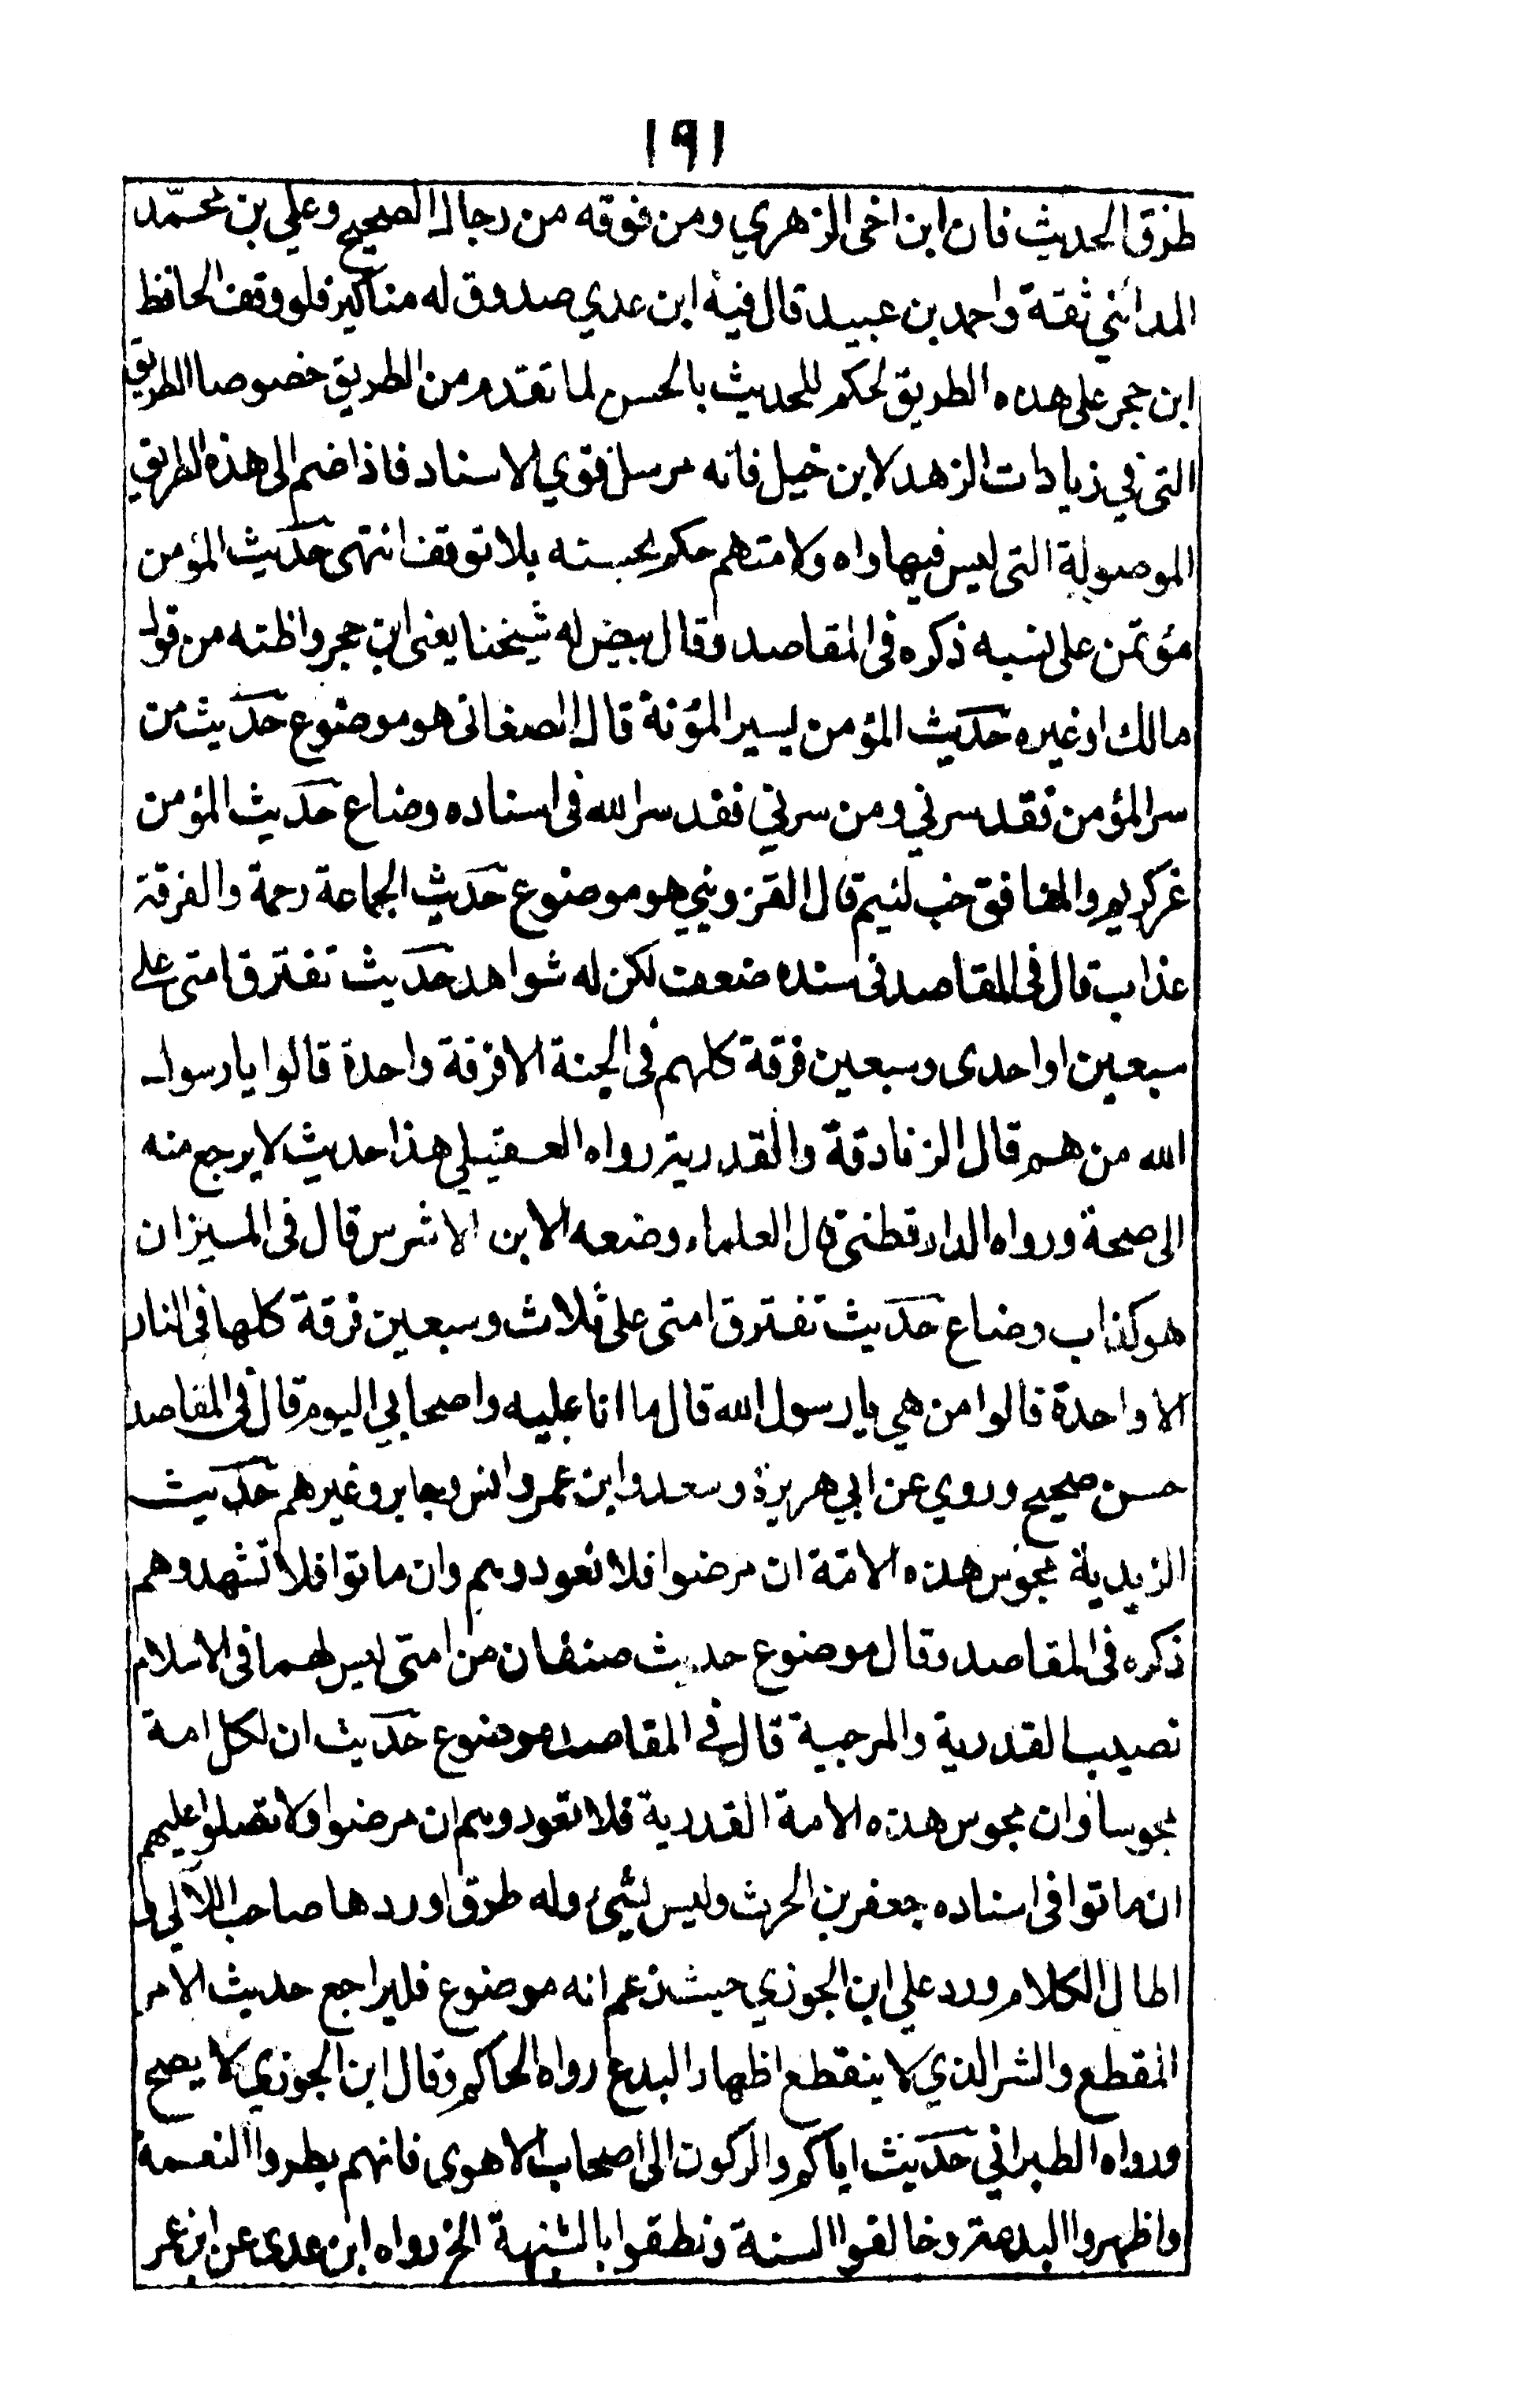 ١٩١
طرق الحديث فان ابن اخى الزهري ومن فوقه من رجال الصحيح وعلي بن محمّد
المدائني ثقة واحمد بن عبيد قال فيه ابن عدي صدوق له مناكير فلو وقف الحافظ
ابن حجر على هذه الطريق لحكم للحديث بالحسن لما تقدم من الطريق خصوصا الطريق
التى في زيادات الزهد لابن خيل فانه مرسل قوي الاسناد فاذا ضم الى هذه الطريق
الموصولة التى ليس فيها واه ولا متهم حكم بحسنه بلا توقف انتهى حديث المؤمن
مؤتمن على نسبه ذكره فى المقاصد وقال بيض له شيخنا يعنى ابن حجر واظنه من قول
مالك او غيره حديث المؤمن ليسير المؤنة قال الصغانى هو موضوع حديث من
سر المؤمن فقد سرني ومن سرني فقد سر الله فى اسناده وضاع حديث المؤمن
غر كريم والمنافق خب لئيم قال القزويني هو موضوع حديث الجماعة رحمة والفرقة
عذاب قال فى المقاصد فى سنده ضعف لكن له شواهد حديث تفترق امتى على
سبعين او احدى وسبعين فرقة كلهم فى الجنة الا فرقة واحدة قالوا يا رسول
الله من هم قال الزنادقة والقدرية رواه العقيلي هذا حديث لا يرجع منه
الى صحة ورواه الدارقطنى قال العلماء وضعه الابن الاشرس قال فى الميزان
هو كذاب وضاع حديث تفترق امتى على ثلاث وسبعين فرقة كلها فى النار
الا واحدة قالوا من هي يا رسول الله قال ما انا عليه واصحابي اليوم قال فى المقاصد
حسن صحيح وروي عن ابي هريرة وسعد وابن عمر وانس وجابر وغيرهم حديث
الزيدية مجوس هذه الامة ان مرضوا فلا تعودوهم وان ماتوا فلا تشهدوهم
ذكره فى المقاصد وقال موضوع حديث صنفان من امتى ليس لهما فى الاسلام
نصيب القدرية والمرجية قال في المقاصد موضوع حديث ان لكل امة
مجوسا وان مجوس هذه الامة القدرية فلا تعودوهم ان مرضوا ولا تصلوا عليهم
ان ماتوا فى اسناده جعفر بن الحرث وليس بشيء وله طرق اوردها صاحب اللآلي و
اطال الكلام ورد على ابن الجوزي حيث زعم انه موضوع فليراجع حديث الامر
المقطع والشر الذي لا ينقطع اظهار البدع رواه الحاكم وقال ابن الجوزي لا يصح
ورواه الطبراني حديث اياكم والركون الى اصحاب الاهوى فانهم بطروا النعمة
واظهروا البدعة وخالفوا السنة ونطقوا بالشبهة الخ رواه ابن عدى عن ابن عمر